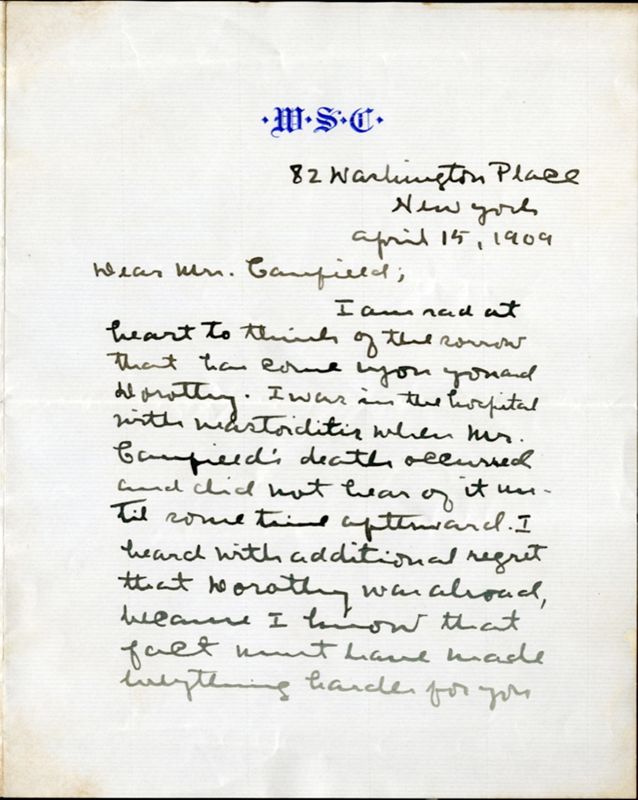 ·W·S·C·
82 Washington Place
New York
April 15, 1909
Dear Mrs. Canfield;
I am sad at
heart to think of the sorrow
that has come upon you and
Dorothy. I was in the hospital
with mastoiditis when Mr.
Canfield's death occurred
and did not hear of it un-
til some time afterward. I
heard with additional regret
that Dorothy was abroad,
because I know that
fact must have made
everything harder for you